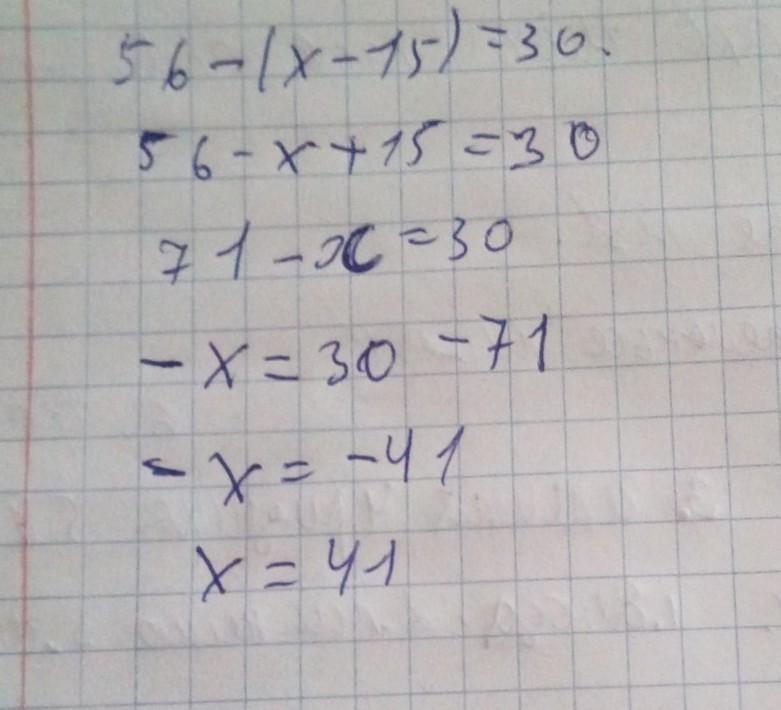 56-(x-15)=30.
56-x+15=30
71-x=30
-x=30-71
-x=-41
x=41